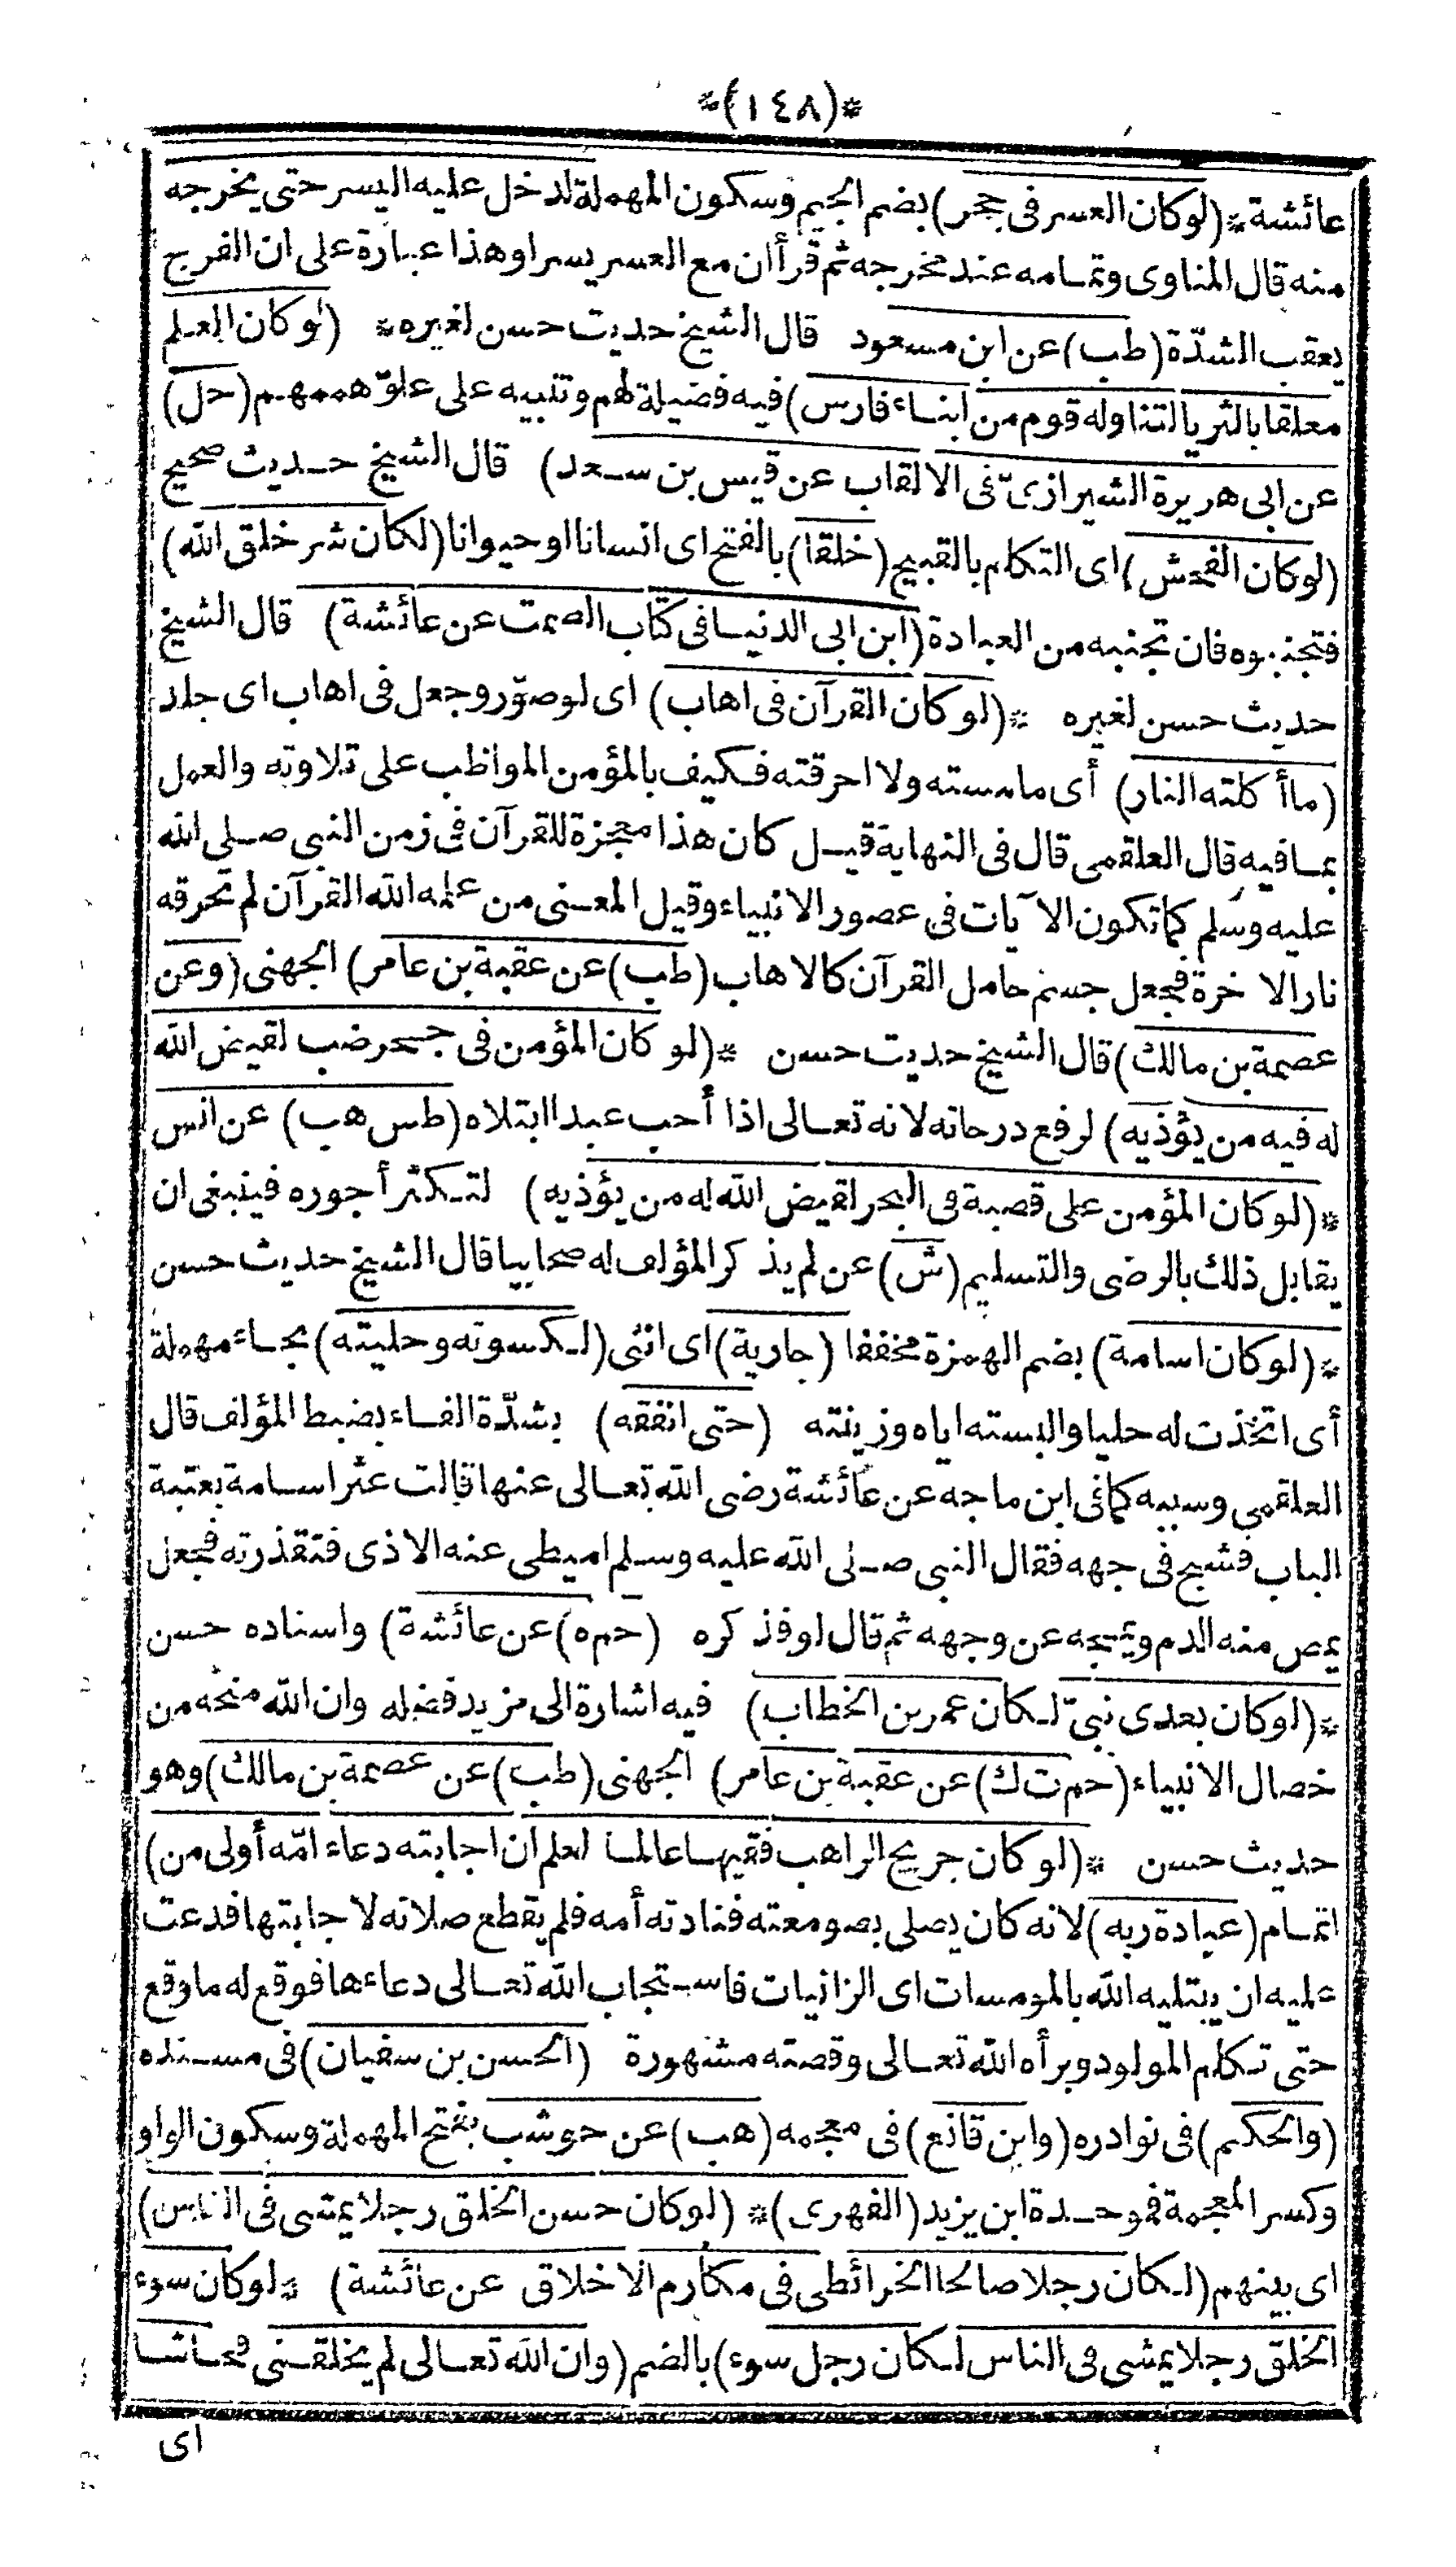 *(١٤٨)*
عائشة *(لو كان العسر فى جحر) بضم الجيم وسكون المهملة لدخل عليه اليسر حتى يخرجه
منه قال المناوى وتمامه عند مخرجه ثم قرأ ان مع العسر يسرا وهذا عبارة على ان الفرج
يعقب الشدّة (طب) عن ابن مسعود قال الشيخ حديث حسن لغيره * (لو كان العلم
معلقا بالثريا لتناوله قوم من ابناء فارس) فيه فضيلة لهم وتنبيه على علوّ هممهم (حل)
عن ابى هريرة الشيرازىّ فى الالقاب عن قيس بن سعد) قال الشيخ حديث صحيح
(لو كان الفحش) اى التكلم بالقبيح (خلقا) بالفتح اى انسانا او حيوانا (لكان شر خلق الله)
فتجنبوه فان تجنبه من العبادة (ابن ابى الدنيا فى كتاب الصمت عن عائشة) قال الشيخ
حديث حسن لغيره *(لو كان القرآن فى اهاب) اى لو صوّر وجعل فى اهاب اى جلد
(ما أكلته النار) أى ما مسته ولا احرقته فكيف بالمؤمن المواظب على تلاوته والعمل
بما فيه قال العلقمى قال فى النهاية قيل كان هذا معجزة للقرآن فى زمن النبى صلى الله
عليه وسلم كما تكون الآيات فى عصور الانبياء وقيل المعنى من علمه الله القرآن لم تحرقه
نار الاخرة فجعل جسم حامل القرآن كالاهاب (طب) عن عقبة بن عامر) الجهنى (وعن
عصمة بن مالك) قال الشيخ حديث حسن *(لو كان المؤمن فى جحر ضب لقيض الله
له فيه من يؤذيه) لرفع درجاته لانه تعالى اذا أحب عبدا ابتلاه (طس هب) عن انس
*(لو كان المؤمن على قصبة فى البحر لقيض الله له من يؤذيه) لتكثر أجوره فينبغى ان
يقابل ذلك بالرضى والتسليم (ش) عن لم يذكر المؤلف له صحابيا قال الشيخ حديث حسن
*(لو كان اسامة) بضم الهمزة مخففا (جارية) اى انثى (لكسوته وحليته) بحاء مهملة
أى اتخذت له حليا والبسته اياه وزينته (حتى انفقه) بشدّة الفاء بضبط المؤلف قال
العلقمى وسببه كما فى ابن ماجه عن عائشة رضى الله تعالى عنها قالت عثر اسامة بعتبة
الباب فشج فى جهه فقال النبى صلى الله عليه وسلم اميطى عنه الاذى فتقذرته فجعل
يمص منه الدم ويمجه عن وجهه ثم قال لو فذكره (حم ه) عن عائشة) واسناده حسن
*(لو كان بعدى نبىّ لكان عمر بن الخطاب) فيه اشارة الى مزيد فضله وان الله منحه من
خصال الانبياء (حم ت ك) عن عقبة بن عامر) الجهنى (طب) عن عصمة بن مالك) وهو
حديث حسن *(لو كان جريج الراهب فقيها عالما لعلم ان اجابته دعاء امّه أولى من)
اتمام (عبادة ربه) لانه كان يصلى بصومعته فنادته أمه فلم يقطع صلاته لاجابتها فدعت
عليه ان يبتليه الله بالمومسات اى الزانيات فاستجاب الله تعالى دعاءها فوقع له ما وقع
حتى تكلم المولود وبرأه الله تعالى وقصته مشهورة (الحسن بن سفيان) فى مسنده
(والحكيم) فى نوادره (وابن قانع) فى معجمه (هب) عن حوشب بفتح المهملة وسكون الواو
وكسر المعجمة فموحدة ابن يزيد (الفهرى) * (لو كان حسن الخلق رجلا يمشى فى الناس)
اى بينهم (لكان رجلا صالحا الخرائطى فى مكارم الاخلاق عن عائشة) *لو كان سوء
الخلق رجلا يمشى فى الناس لكان رجل سوء) بالضم (وان الله تعالى لم يخلقنى فحاشا
اى